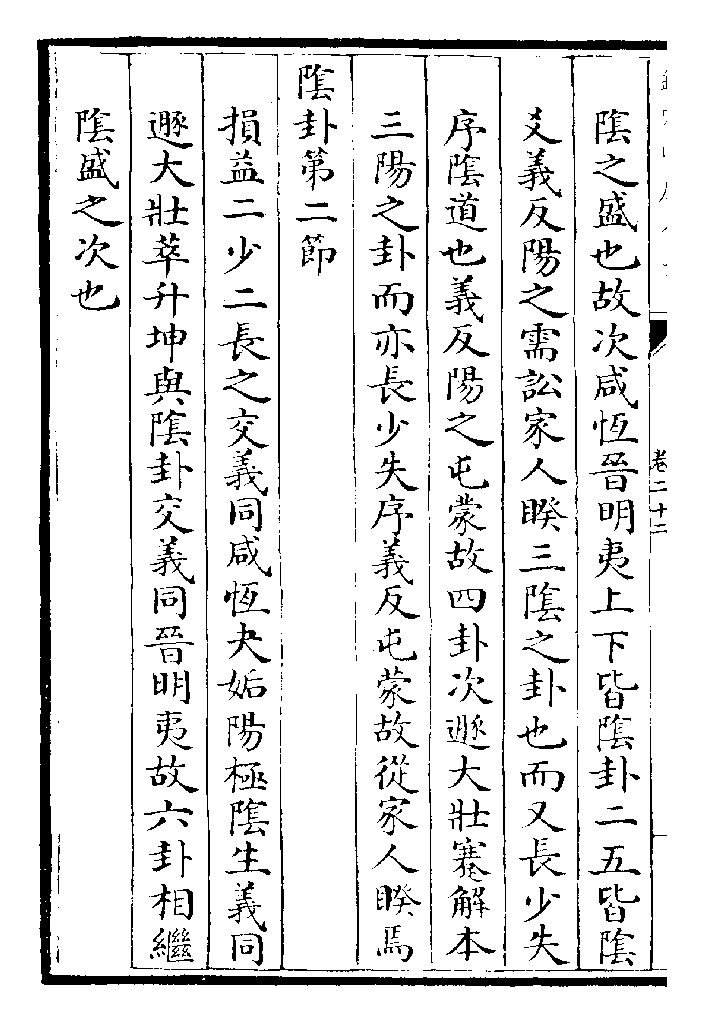 卷二十二
陰之盛也故次咸恆晉明夷上下皆陰卦二五皆陰
爻義反陽之需訟家人睽三陰之卦也而又長少失
序陰道也義反陽之屯蒙故四卦次遯大壯蹇解本
三陽之卦而亦長少失序義反屯蒙故從家人睽焉
陰卦第二節
損益二少二長之交義同咸恆夬姤陽極陰生義同
遯大壯萃升坤與陰卦交義同晉明夷故六卦相繼
陰盛之次也